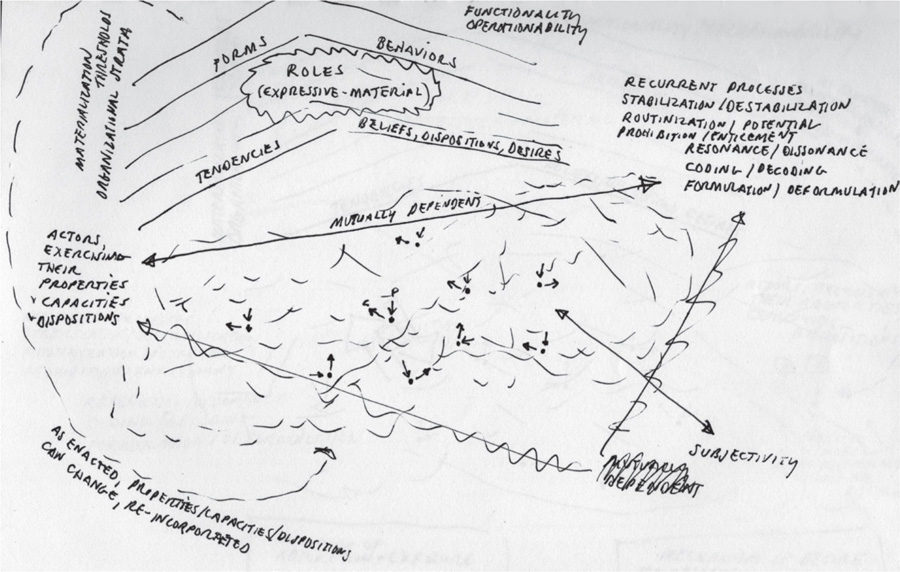 FUNCTIONALITY
OPERATIONABILITY
MATERIALIZATION
THRESHOLDS
ORGANIZATIONAL STRATA
FORMS
BEHAVIORS
ROLES
(EXPRESSIVE-MATERIAL)
BELIEFS, DISPOSITIONS, DESIRES
TENDENCIES
RECURRENT PROCESSES
STABILIZATION/DESTABILIZATION
ROUTINIZATION/POTENTIAL
PROHIBITION/ENTICEMENT
RESONANCE/DISSONANCE
CODING/DECODING
FORMULATION/DEFORMULATION
MUTUALLY DEPENDENT
ACTORS,
EXERCISING
THEIR
PROPERTIES
+ CAPACITIES
+ DISPOSITIONS
P
SUBJECTIVITY
MUTUALLY
DEPENDENT
AS ENACTED, PROPERTIES/CAPACITIES/DISPOSITIONS
CAN CHANGE, RE-INCORPORATED